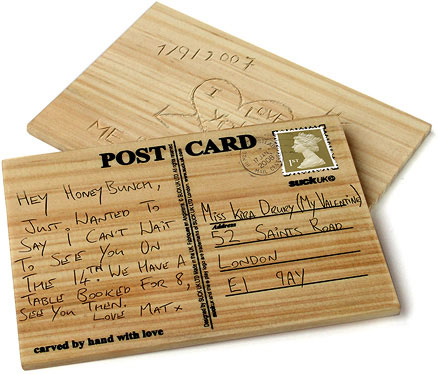 1/9/2007
I
LOVE
YO
ME
POST CARD
1ST
SUCK UK
HEY HONEYBUNCH,
JUST WANTED TO
SAY I CAN'T WAIT
TO SEE YOU ON
THE 14TH. WE HAVE A
TABLE BOOKED FOR 8,
SEE YOU THEN.
LOVE MAT X
carved by hand with love
Miss KIRA DRURY (MY VALENTINE)
Address
52 SAINTS ROAD
LONDON
E1 9AY